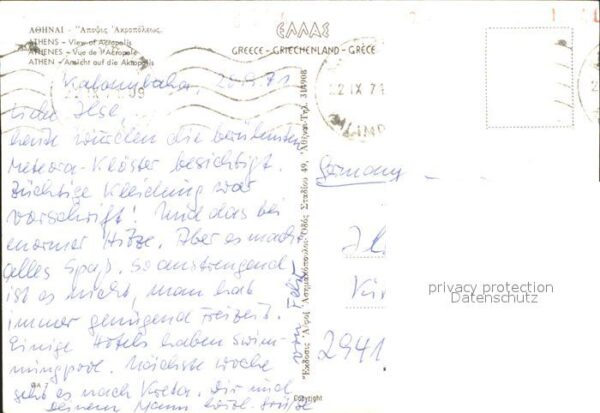 ΑΘΗΝΑΙ - Ἄποψις Ἀκροπόλεως.
ATHENS - View of Acropolis
ATHENES - Vue de l'Acropole
ATHEN - Ansicht auf die Akropolis
ΕΛΛΑΣ
GREECE - GRIECHENLAND - GRECE
Kalambaka, 20.9.71
Liebe Ilse,
heute wurden die berühmten
Meteora-Klöster besichtigt.
Züchtige Kleidung war
Vorschrift! Und das bei
enormer Hitze. Aber es macht
alles Spaß. So anstrengend
ist es nicht, man hat
immer genügend Freizeit.
Einige Hotels haben Swim-
mingpool. Nächste Woche
geht es nach Kreta. Dir und
Deinem Mann herzl. Grüße
von
22 IX 71
Germany
Il
2941
privacy protection
Datenschutz
Copyright